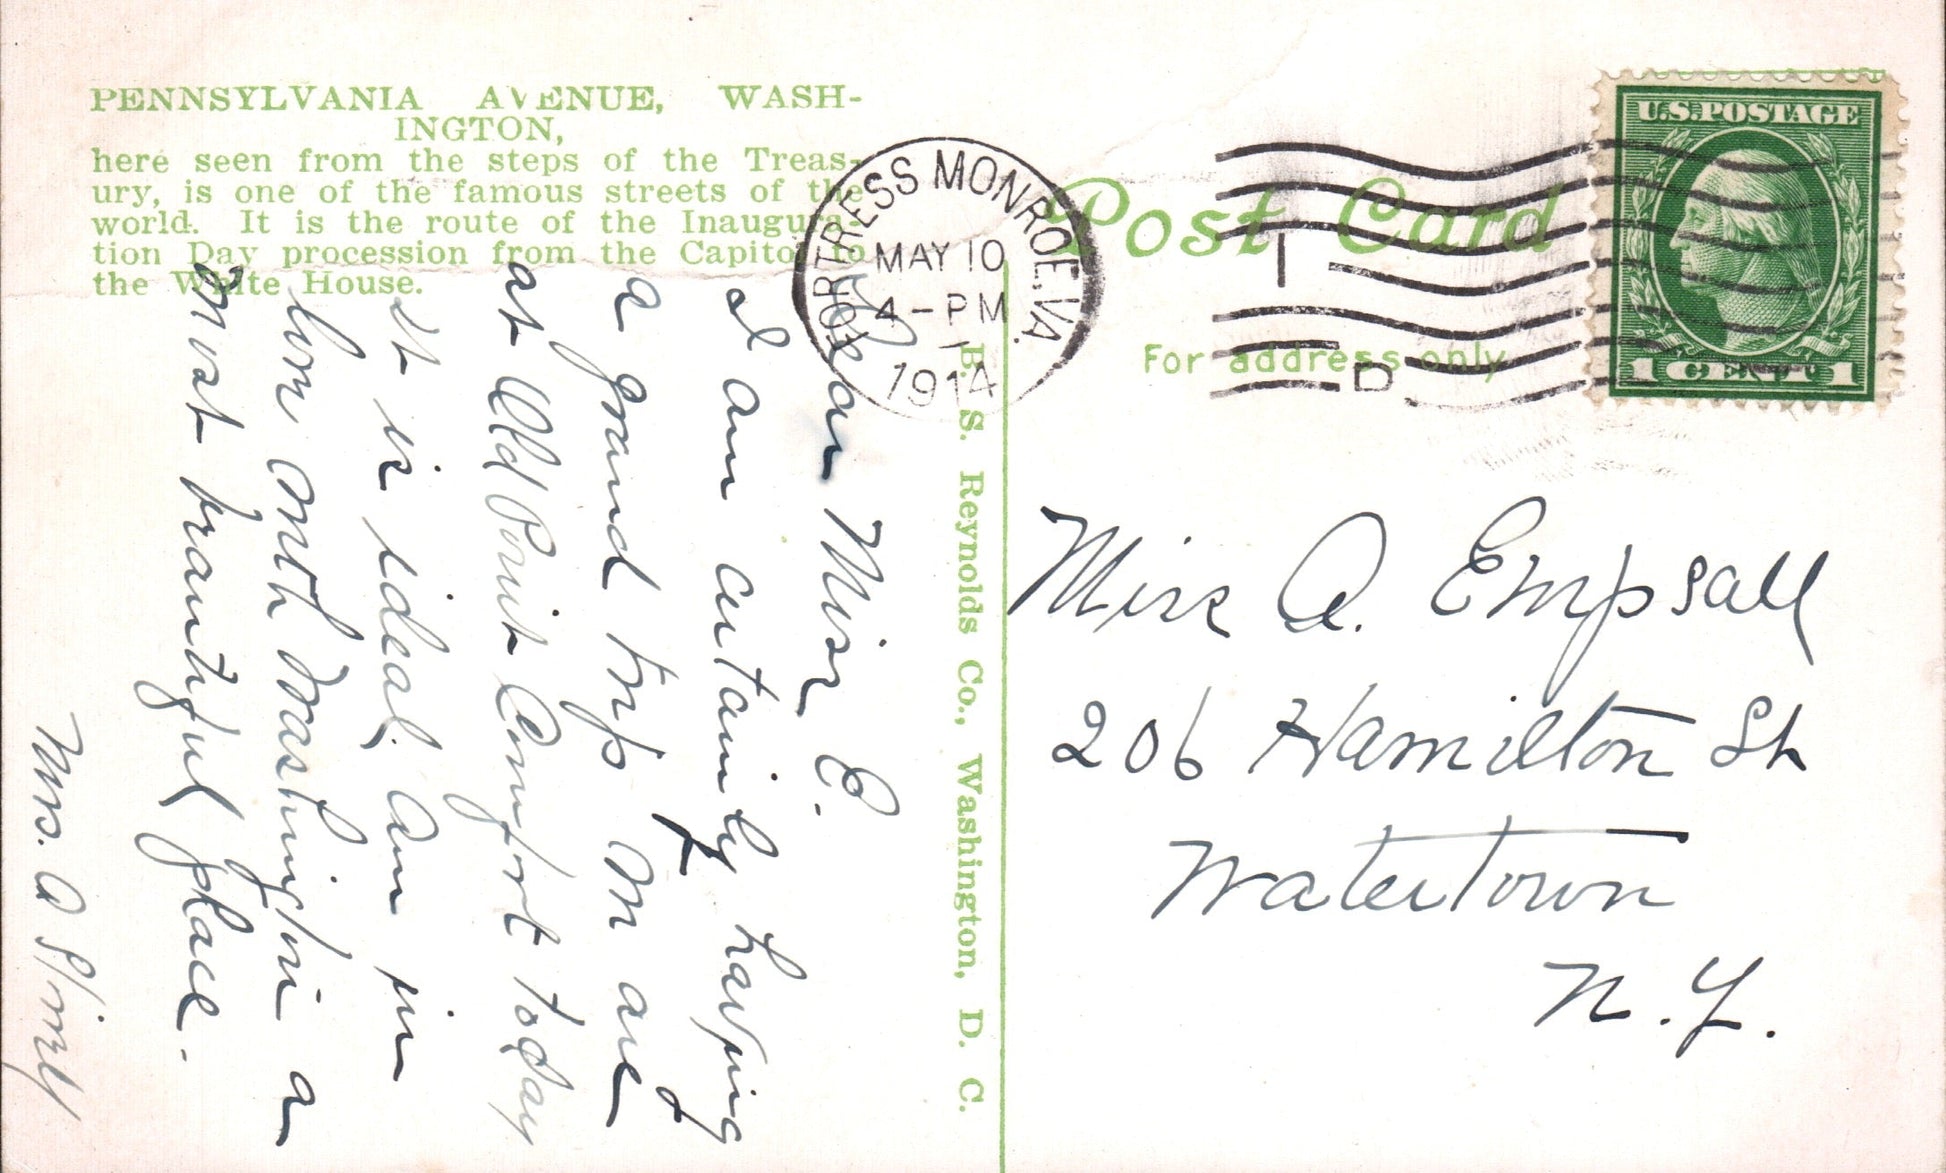 PENNSYLVANIA AVENUE, WASH-
INGTON,
here seen from the steps of the Treas-
ury, is one of the famous streets of the
world. It is the route of the Inaugura-
tion Day procession from the Capitol to
the White House.
Dear Miss E.
I am certainly having
a grand trip. We are
at Old Point Comfort today
It is ideal. Am in
love with Washington a
most beautiful place.
Mrs. A
B. S. Reynolds Co., Washington, D. C.
Post Card
For address only
FORTRESS MONROE, VA.
MAY 10
4-PM
1914
I
D
U.S. POSTAGE
1 CENT 1
Miss A. Empsall
206 Hamilton St
Watertown
N.Y.